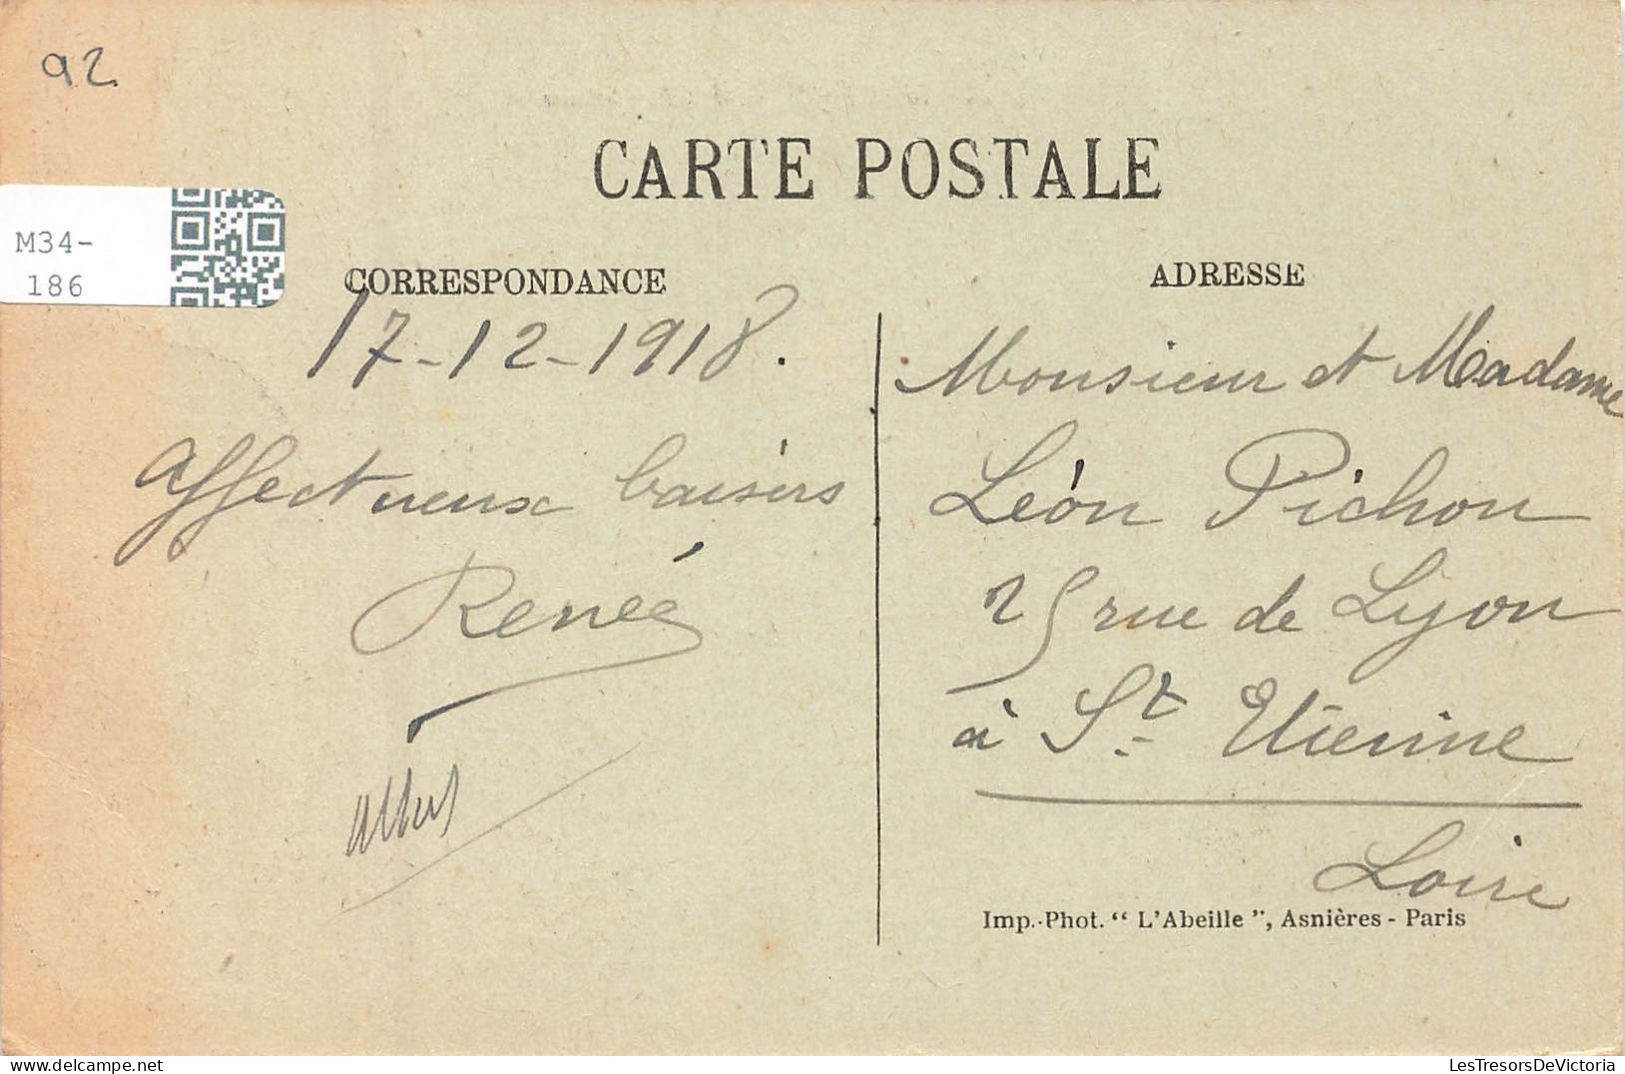 92
CARTE POSTALE
M34-
186
CORRESPONDANCE
17-12-1918.
Affectueux baisers
Renée
ADRESSE
Monsieur et Madame
Léon Pichon
25 rue de Lyon
à St Etienne
Loire
Imp.-Phot. “ L'Abeille ”, Asnières - Paris
delcampe.net
LesTresorsDeVictoria